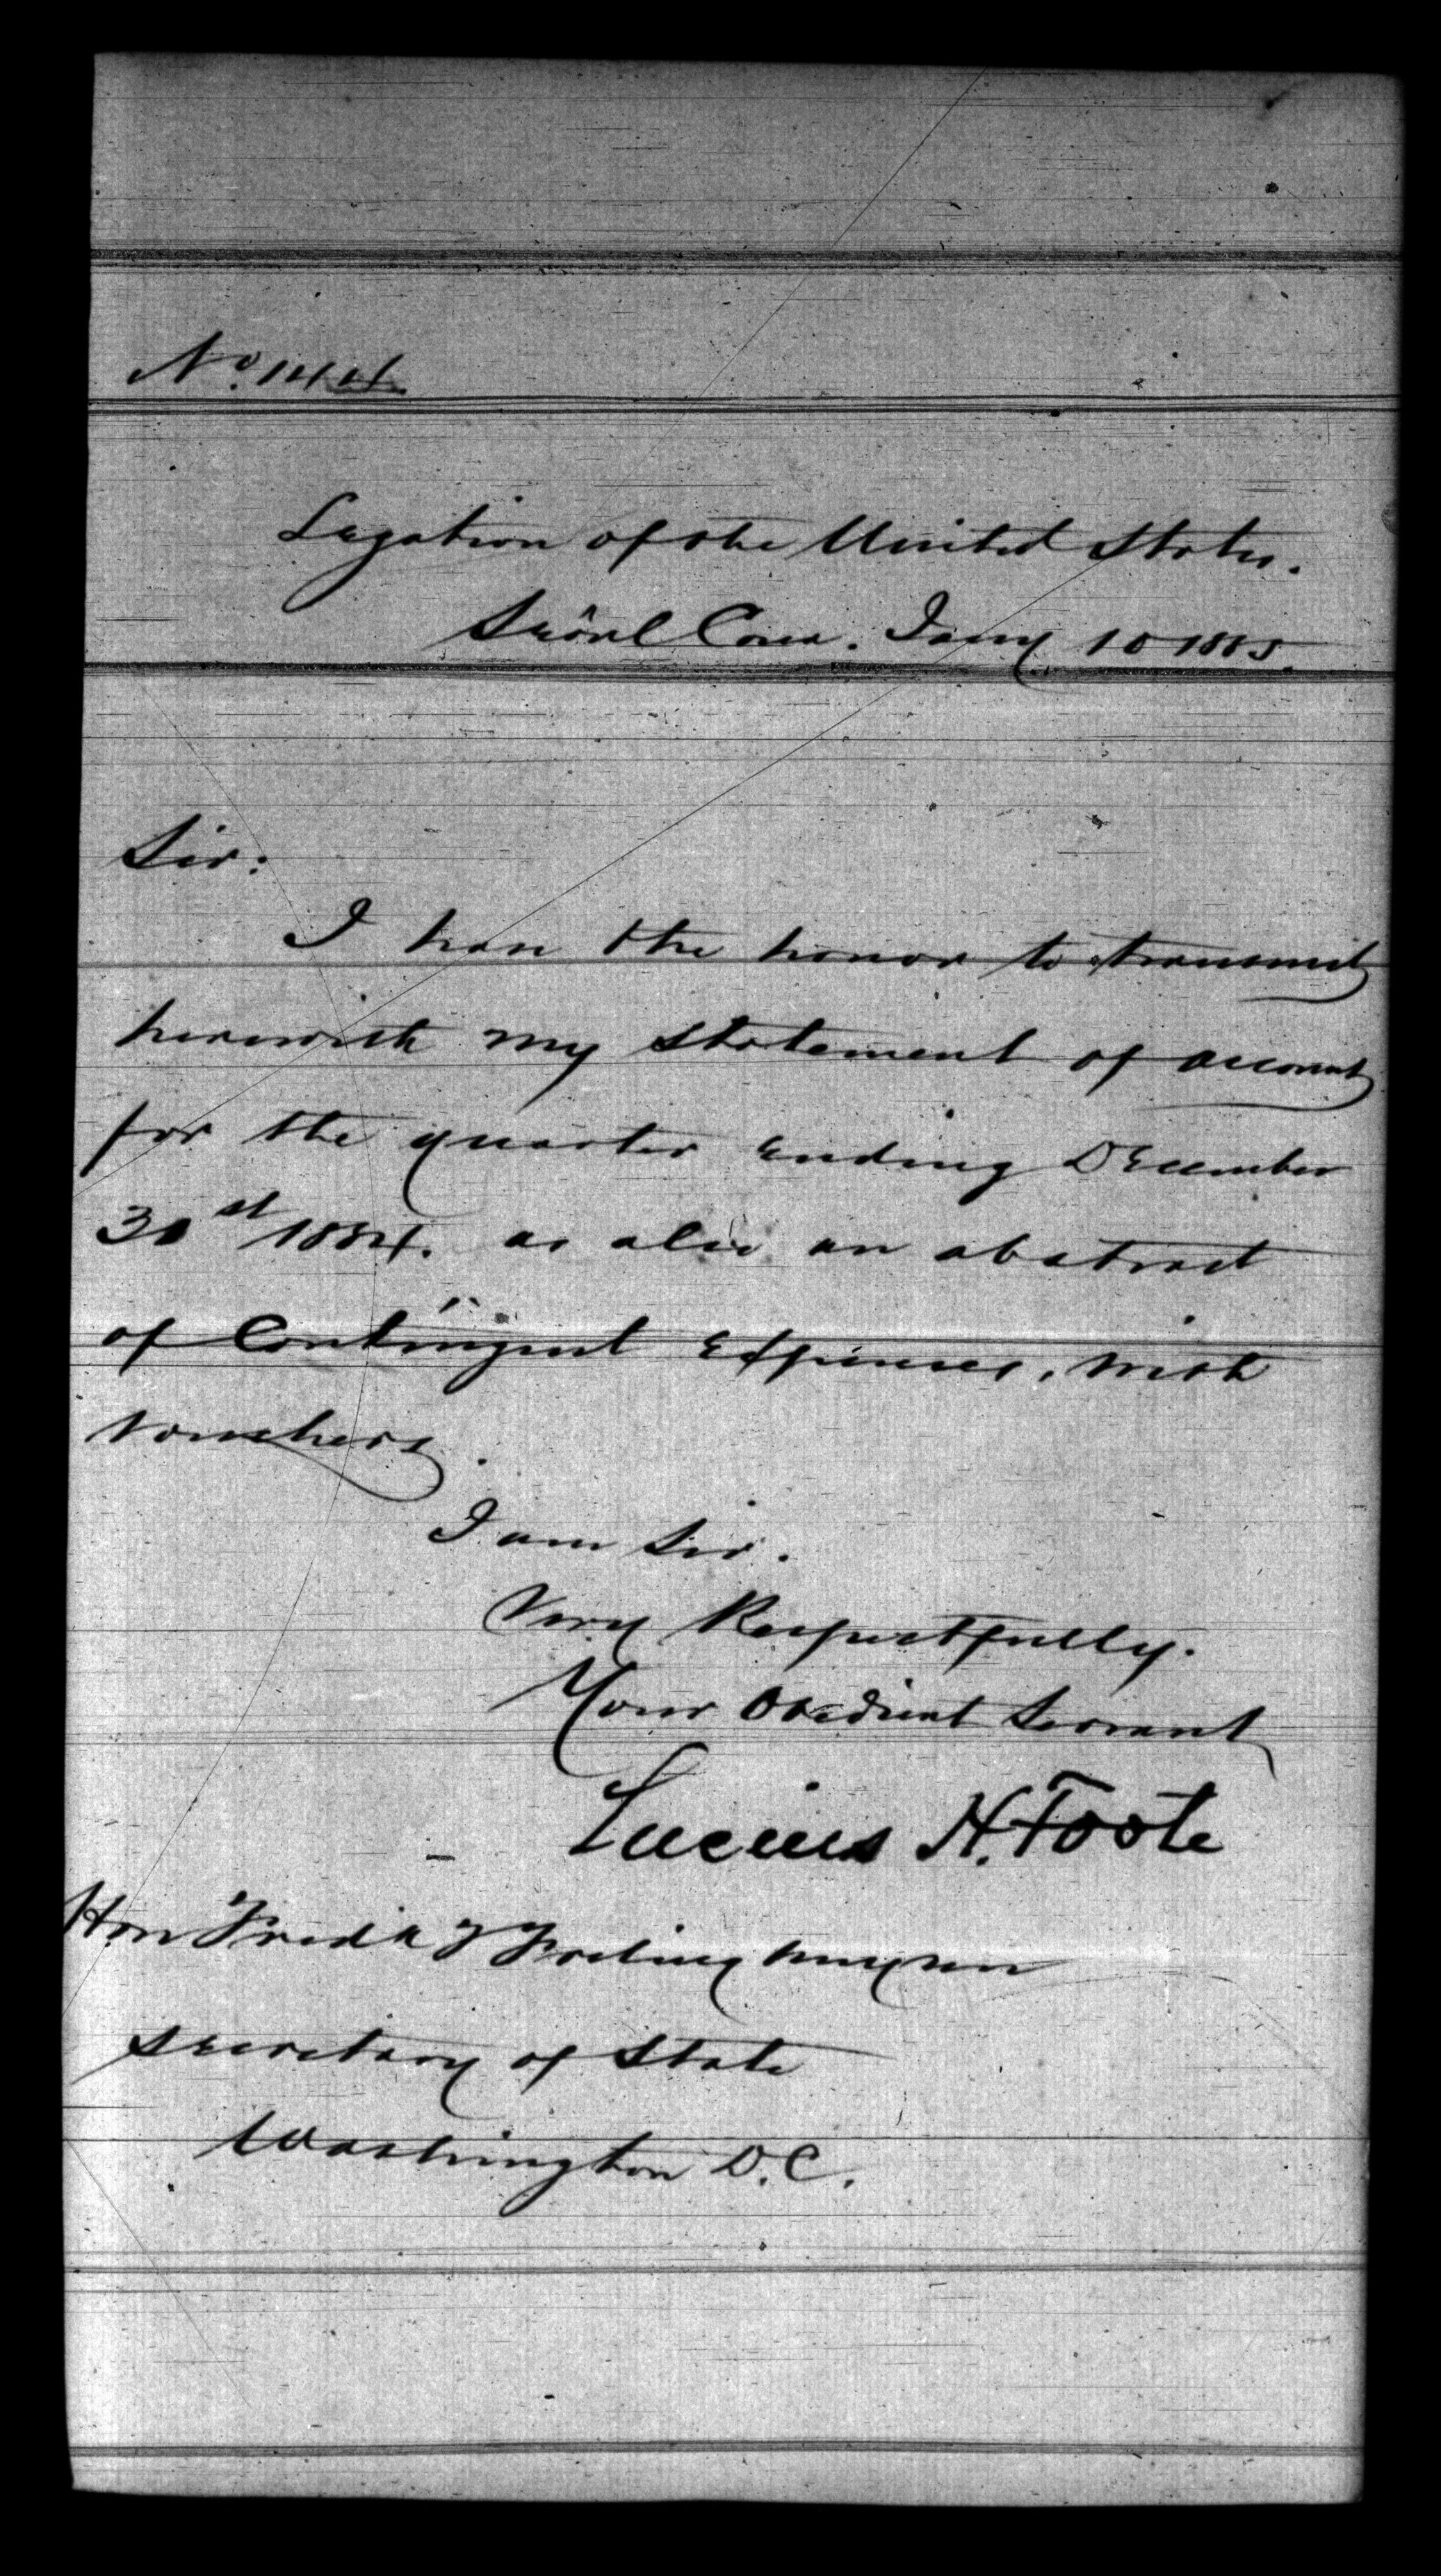 No. 144
Legation of the United States.
Seôul Corea. Jany 10 1885.
Sir:
I have the honor to transmit
herewith my statement of account
for the quarter ending December
31st 1884. as also an abstract
of Contingent Expenses, with
vouchers.
I am Sir.
Very Respectfully.
Your Obedient Servant
Lucius H. Foote
Hon Fredk T Frelinghuysen
Secretary of State
Washington D.C.